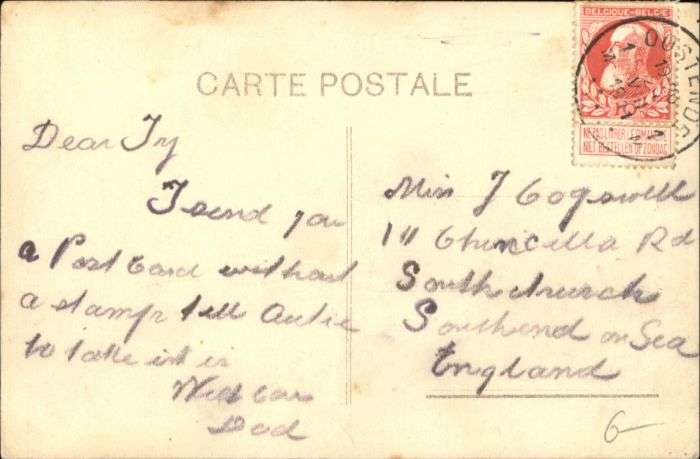 BELGIQUE-BELGIË
OOSTENDE
NE PAS LIVRER LE DIMANCHE
NIET BESTELLEN OP ZONDAG
CARTE POSTALE
Dear Ivy
I send you
a Post Card without
a stamp tell Autie
to take it in
Dad
Miss J Cogswell
111 Chincilla Rd
Southchurch
Southend on Sea
England
6-